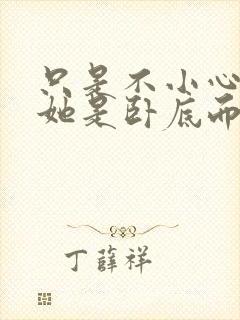 只是不小心
她是卧底而
丁薛祥